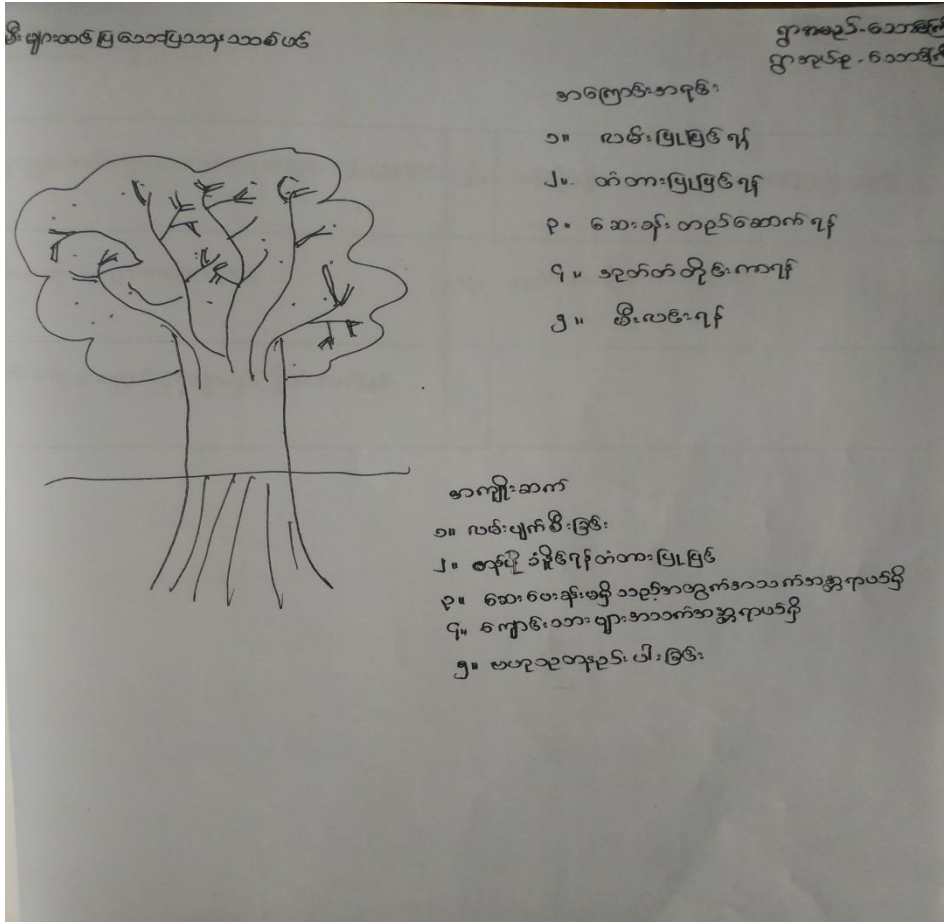 ဦးများတင်ပြသောပြဿနာသစ်ပင်
ရွာအမည်-သော
ရွာအုပ်စု-သော
အကြောင်းအရင်း
၁။ လမ်းပြုပြင်ရန်
၂။ တံတားပြုပြင်ရန်
၃။ ဆေးခန်းတည်ဆောက်ရန်
၄။ အုတ်တံတိုင်းကာရန်
၅။ မီးလင်းရန်
အကျိုးဆက်
၁။ လမ်းပျက်စီးခြင်း
၂။ ခံနိုင်ရန်တံတားပြုပြင်
၃။ ဆေးပေးခန်းမရှိသည့်အတွက်အသက်အန္တရာယ်ရှိ
၄။ ကျောင်းသားများအသက်အန္တရာယ်ရှိ
၅။ ဗဟုသုတနည်းပါးခြင်း